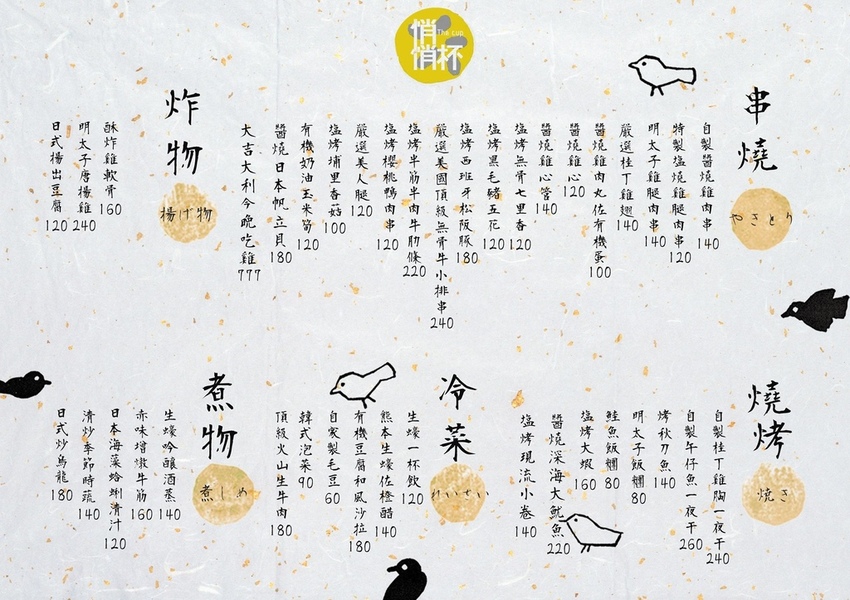 悄悄杯
The cup
串燒
やきとり
自製醬燒雞肉串 140
特製塩燒雞腿肉串 120
明太子雞腿肉串 140
嚴選桂丁雞翅 140
醬燒雞肉丸佐有機蛋 100
醬燒雞心 120
醬燒雞心管 140
塩烤無骨七里香 120
塩烤黑毛豬五花 120
塩烤西班牙松阪豚 180
嚴選美國頂級無骨牛小排串 240
塩烤半筋半肉牛肋條 220
塩烤櫻桃鴨肉串 120
嚴選美人腿 120
塩烤埔里香菇 100
有機奶油玉米筍 120
醬燒日本帆立貝 180
大吉大利今晚吃雞 777
炸物
揚げ物
酥炸雞軟骨 160
明太子唐揚雞 240
日式揚出豆腐 120
燒烤
焼き
自製桂丁雞胸一夜干 240
自製午仔魚一夜干 260
烤秋刀魚 140
明太子飯糰 80
鮭魚飯糰 80
塩烤大蝦 160
醬燒深海大魷魚 220
塩烤現流小卷 140
冷菜
れいさい
生蠔一杯飲 120
熊本生蠔佐橙醋 140
有機豆腐和風沙拉 180
自家製毛豆 60
韓式泡菜 90
頂級火山生牛肉 180
煮物
煮しめ
生蠔吟釀酒蒸 140
赤味增燉牛筋 160
日本海藻蛤蜊清汁 120
清炒季節時蔬 140
日式炒烏龍 180